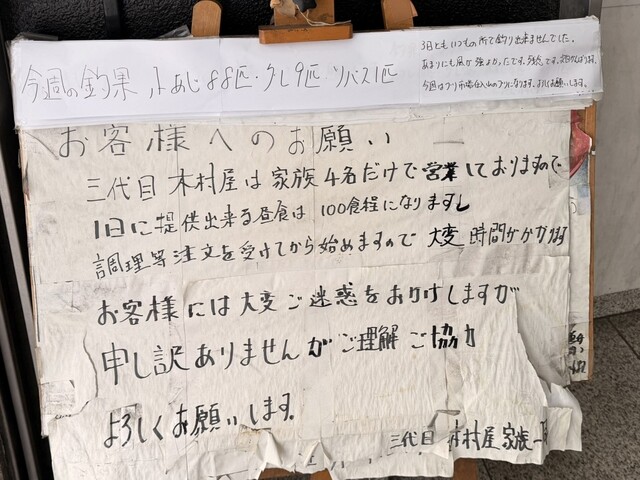 今週の釣果 小あじ88匹・グレ9匹 ツバス1匹
3日ともいつもの所で釣り出来ませんでした。
あまりにも風が強よかったです。
今回はフリ市場仕入のブリになります。よろしくお願いします。
お客様へのお願い
三代目 木村屋は家族4名だけで営業しておりますので
1日に提供出来る昼食は100食程になりますし
調理等注文を受けてから始めますので 大変時間がかかります
お客様には大変ご迷惑をおかけしますが
申し訳ありませんがご理解ご協力
よろしくお願いします。
三代目 木村屋家族一同